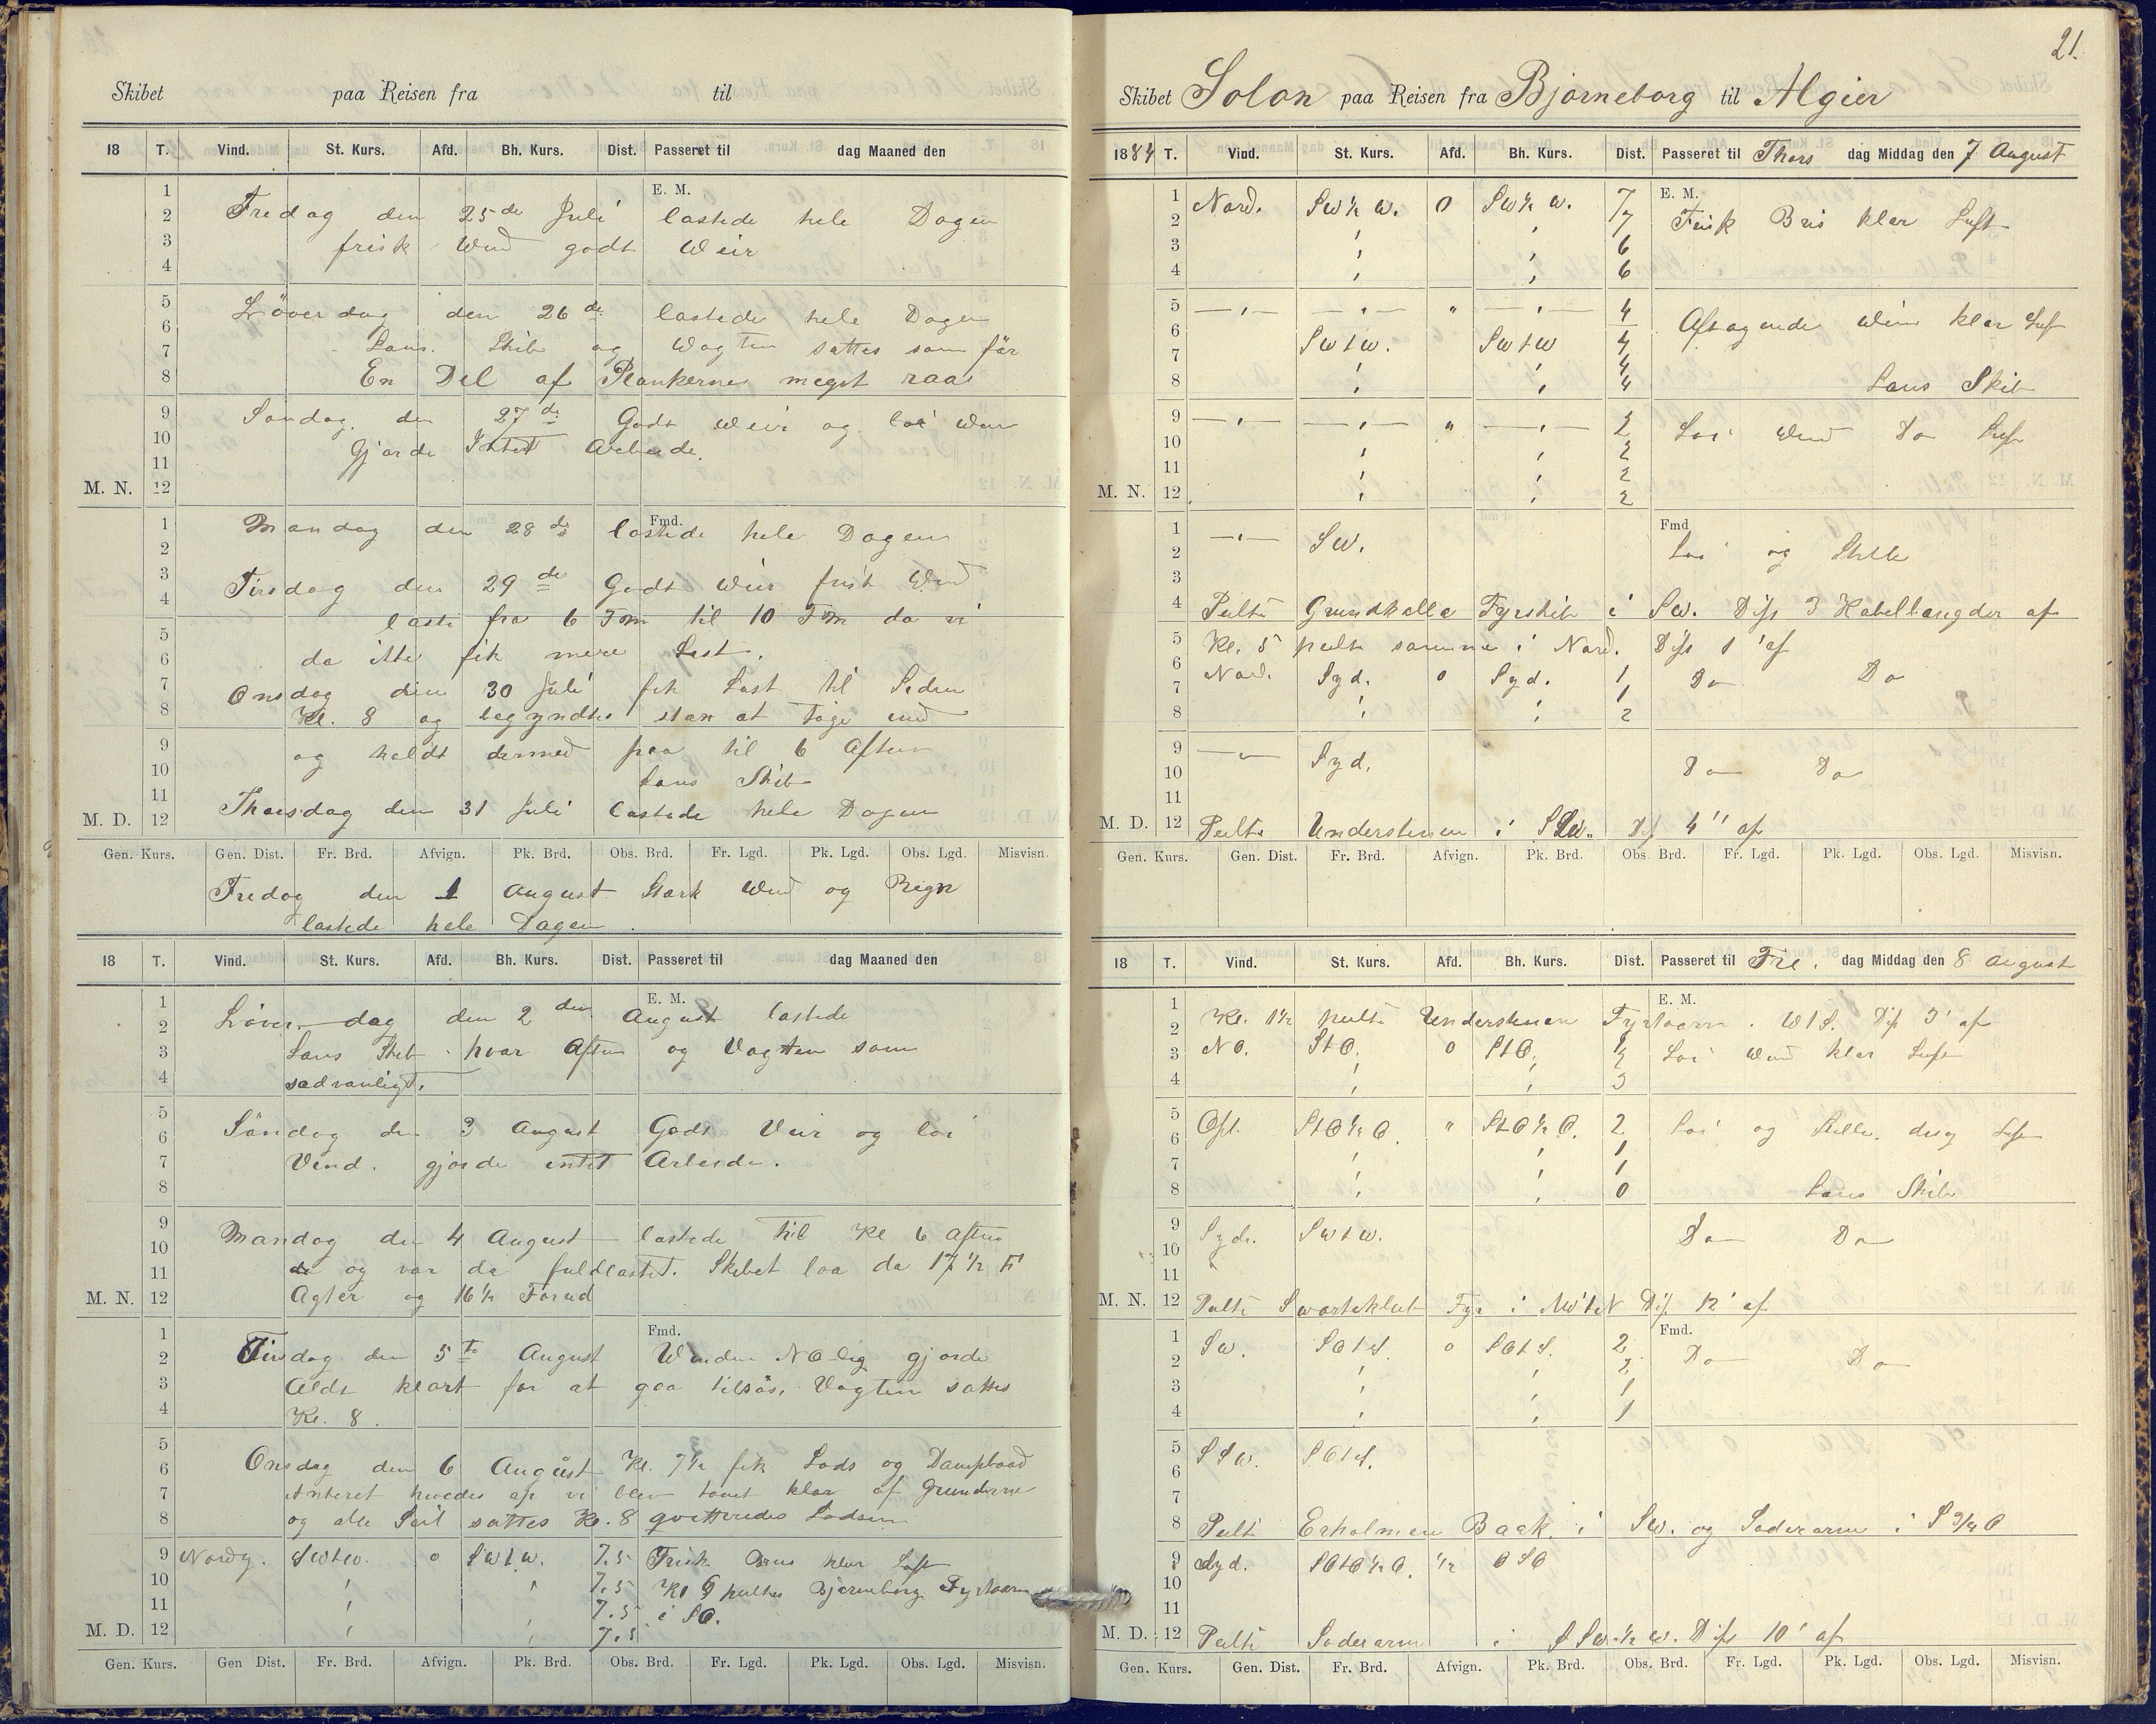 Skibet paa Reisen fra til
18 T. Vind. St. Kurs. Afd. Bh. Kurs. Dist. Passeret til dag Maaned den
E. M.
Fredag den 25de Juli lastede hele Dagen
frisk Wind godt Weir
Löverdag den 26de lastede hele Dagen
Lans. Skib og Wagten sattes som för
En Del af Plankerne meget raa
Søndag. den 27de Godt Weir og loi Wind
Gjorde Intet Arbeide.
M. N. 12
Fmd.
Mandag den 28de lastede hele Dagen
Tirsdag den 29de Godt Weir frisk Wind
laste fra 6 Fm til 10 Fm da vi
da ikke fik mere Last.
Onsdag den 30 Juli fik Last til Siden
Kl. 8 og begyndte strax at tage ind
og holdt dermed paa til 6 Aften
Lans Skib
Thorsdag den 31 Juli lastede hele Dagen
M. D. 12
Gen. Kurs. Gen. Dist. Fr. Brd. Afvign. Pk. Brd. Obs. Brd. Fr. Lgd. Pk. Lgd. Obs. Lgd. Misvisn.
Fredag den 1 August Stark Wind og Regn
lastede hele Dagen.
18 T. Vind. St. Kurs. Afd. Bh. Kurs. Dist. Passeret til dag Maaned den
E. M.
Löver-dag den 2den August lastede
Lans Skib hvær Aften og Vagten som
sædvanligt.
Söndag den 3 August Godt Veir og loi
Vind. gjorde intet Arbeide.
Mandag den 4 August lastede til Kl 6 Aften
og var da fuldlastet. Skibet laa da 17 1/2 F
M. N. 12 Agter og 16 1/2 Forud
Fmd.
Tirsdag den 5te August Winden NO lig gjorde
Aldt klart for at gaa tilsös, Vagten sattes
Kl. 8.
Onsdag den 6 August Kl. 7 1/2 fik Lods og Dampbaad
Ankeret hivedes op vi blev touet klar af Grunderne
og alle Seil sattes Kl. 8 qvitteredes Lodsen
9 Nordg. SWtW. 0 SWtW. 7.5 Frisk Bris klar Luft
10 7.5 Kl 9 peiltes Bjorneborg Fyrtaarn
11 7.5 i SO.
M. D. 12 7.5
Gen. Kurs. Gen Dist. Fr. Brd. Afvign. Pk. Brd. Obs. Brd. Fr. Lgd. Pk. Lgd. Obs. Lgd. Misvisn.
21.
Skibet Solon paa Reisen fra Bjorneborg til Algier
1884 T. Vind. St. Kurs. Afd. Bh. Kurs. Dist. Passeret til Thors dag Middag den 7 August
E. M.
1 Nord. SW 1/2 W. 0 SW 1/2 W. 7
2 7 Frisk Bris klar Luft
3 6
4 6
5 " 4 Aftagende Wind klar Luft
6 SWtW. SWtW 4
7 4
8 4 Lans Skib
9 " 2 Loi Wind Do Luft
10 2
11 2
M. N. 12 2
Fmd
1 SW.
2 Loi og Stille
3
4 Peilte Grundkalle Fyrskib i SW. Dist 3 Kabellængder af
5 Kl. 5 peilte samme i Nord. Dist 1' af
6 Nord. Syd. 0 Syd. 1 Do Do
7 1
8 2
9 Syd.
10 Do Do
11
M. D. 12 Peilte Understenen i SSW. Dist 4'' af
Gen. Kurs. Gen. Dist. Fr. Brd. Afvign. Pk. Brd. Obs. Brd. Fr. Lgd. Pk. Lgd. Obs. Lgd. Misvisn.
18 T. Vind. St. Kurs. Afd. Bh. Kurs. Dist. Passeret til Fre. dag Middag den 8 August
E. M.
1 Kl. 1 1/2 peilte Understenen Fyrtaarn. WtS. Dist 3' af
2
3 NO. StO. 0 StO. 2 Loi Wind klar Luft
4 3
5 Ost. StO 1/2 O. " StO 1/2 O. 2 Loi og Stille. disig Luft
6 1
7 1
8 0 Lans Skib
9 Syd. SWtW. Do Do
10
11
M. N. 12 Peilte Swarteklub Fyr i NWtN Dist 12' af
Fmd.
1 SW. SOtS. 0 SOtS. 2 Do Do
2 2
3 1
4 1
5 SSW. SOtS.
6
7
8 Peilte Erholmen Baak i SW. og Soderarm i S 3/4 O
9 Syd. SOtO 1/2 O. 1/2 OSO
10
11
M. D. 12 Peilte Soderarm i SSW 1/2 W. Dist 10' af
Gen. Kurs. Gen. Dist. Fr. Brd. Afvign. Pk. Brd. Obs. Brd. Fr. Lgd. Pk. Lgd. Obs. Lgd. Misvisn.